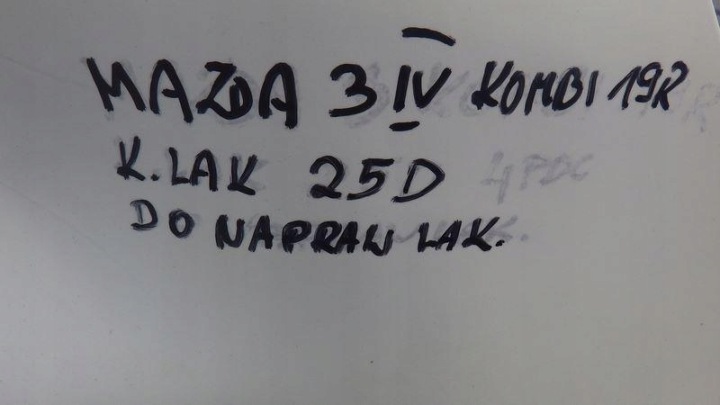 MAZDA 3 IV KOMBI 19R
K.LAK 25D 4PDC
DO NAPRAW LAK.